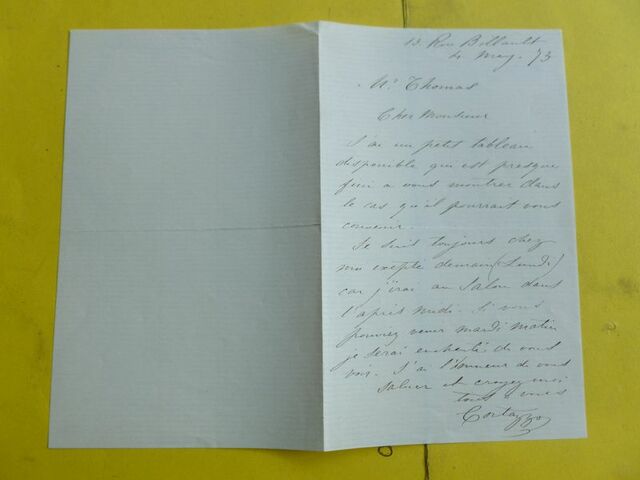 13 Rue Billault
4 May. 73
Mr. Thomas
Cher Monsieur
J'ai un petit tableau
disponible qui est presque
fini a vous montrer dans
le cas qu'il pourrait vous
convenir.
Je suis toujours chez
moi excepté demain (Lundi)
car j'irai au Salon dans
l'apres midi. Si vous
pouvez venir mardi matin
je serai enchanté de vous
voir. J'ai l'honneur de vous
saluer et croyez moi
tout a vous
Cortazzo